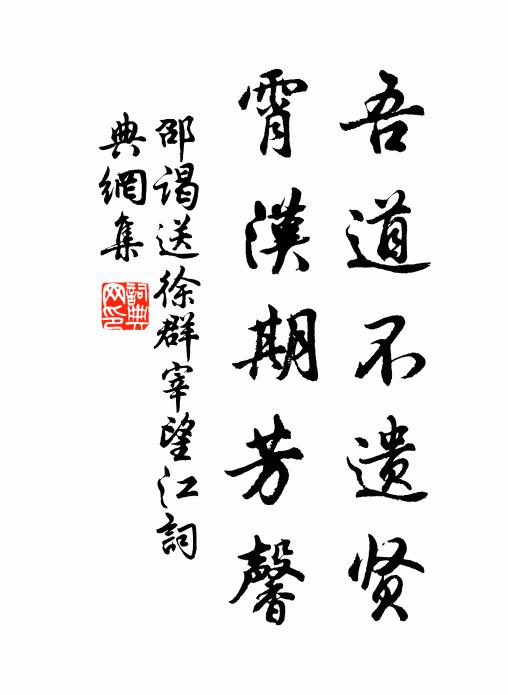 吾道不遗贤
霄漢期芳馨
邵谒送徐群宰望江詞
典網集
詞典
网印